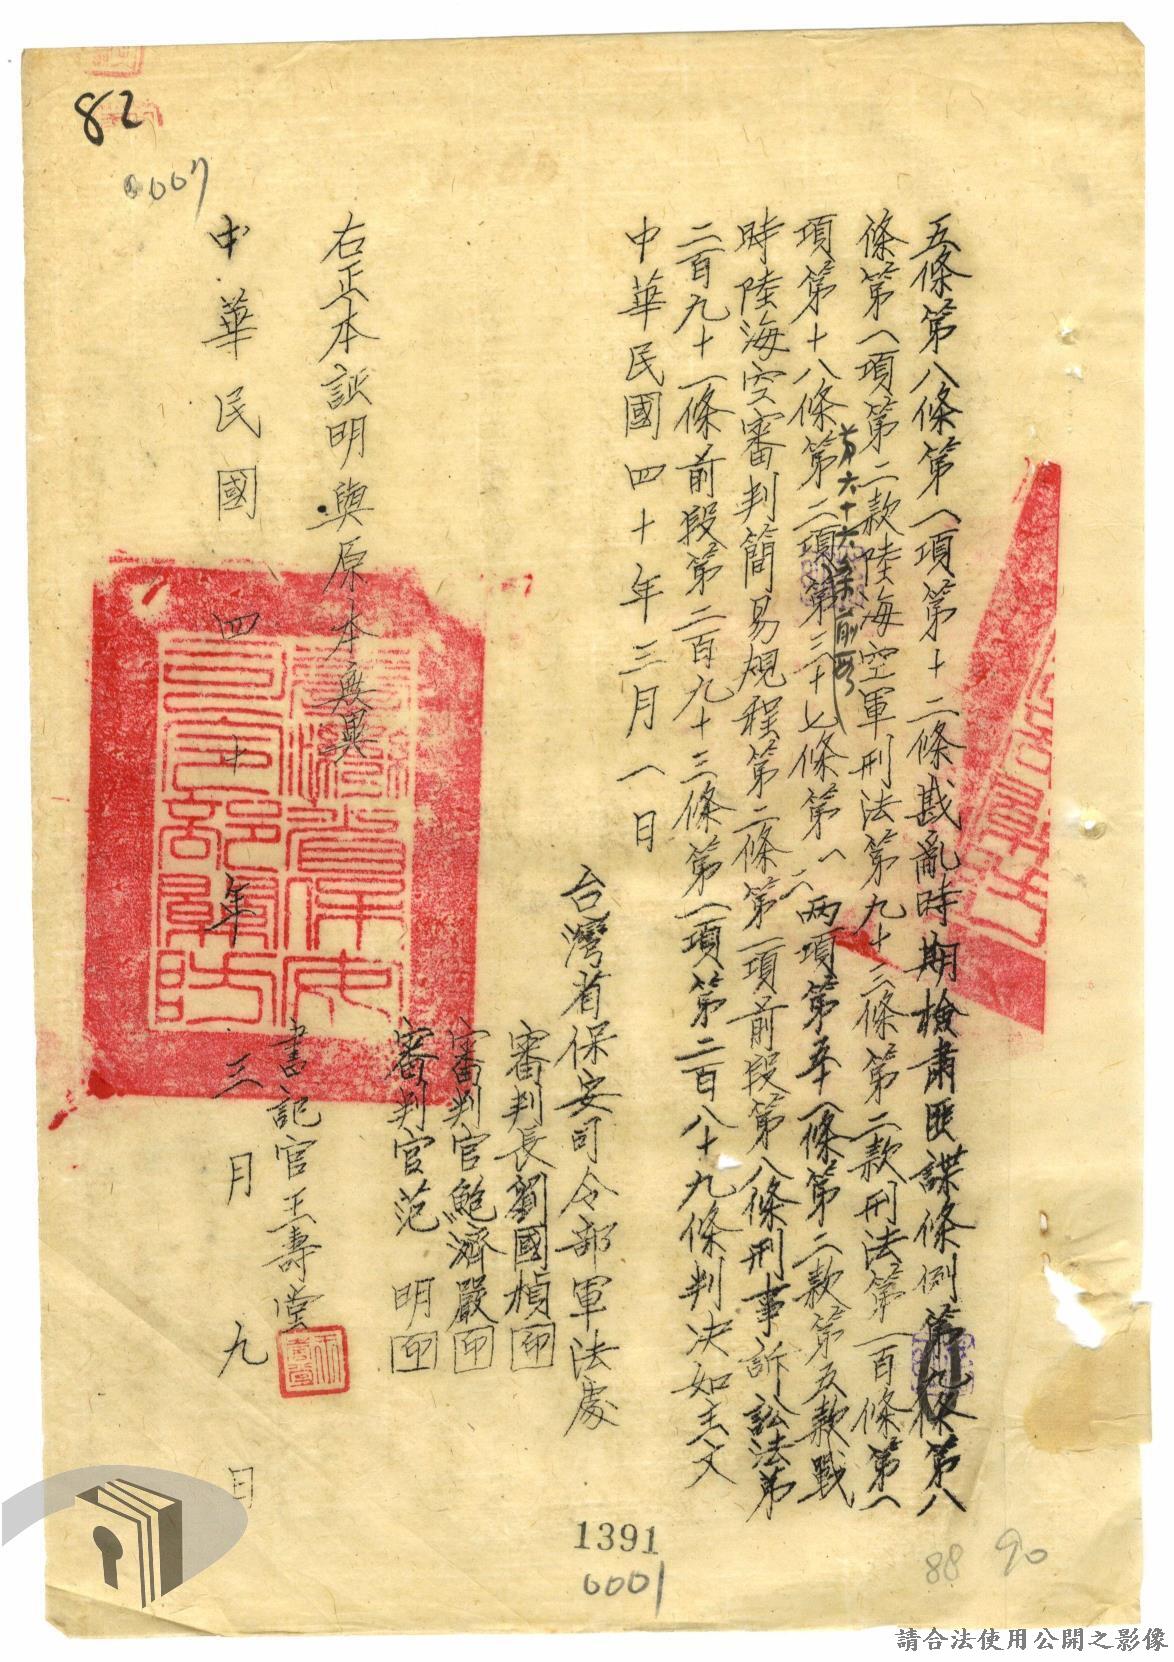 82
0007
五條第八條第一項第十二條戡亂時期檢肅匪諜條例第九條第八
條第一項第二款陸海空軍刑法第九十三條第二款刑法第一百條第一
項第十八條第二項第三十七條第一二兩項第五十一條第二款第五款戰
第六十六條前段
時陸海空審判簡易規程第二條第一項前段第八條刑事訴訟法第
二百九十一條前段第二百九十三條第一項第二百八十九條判決如主文
中華民國四十年三月一日
台灣省保安司令部軍法處
審判長劉國楨印
審判官鮑濟嚴印
審判官范明印
右正本証明與原本無異
書記官王壽堂
中華民國四十年三月九日
臺灣省保安司令部軍法
1391
0001
88
90
請合法使用公開之影像